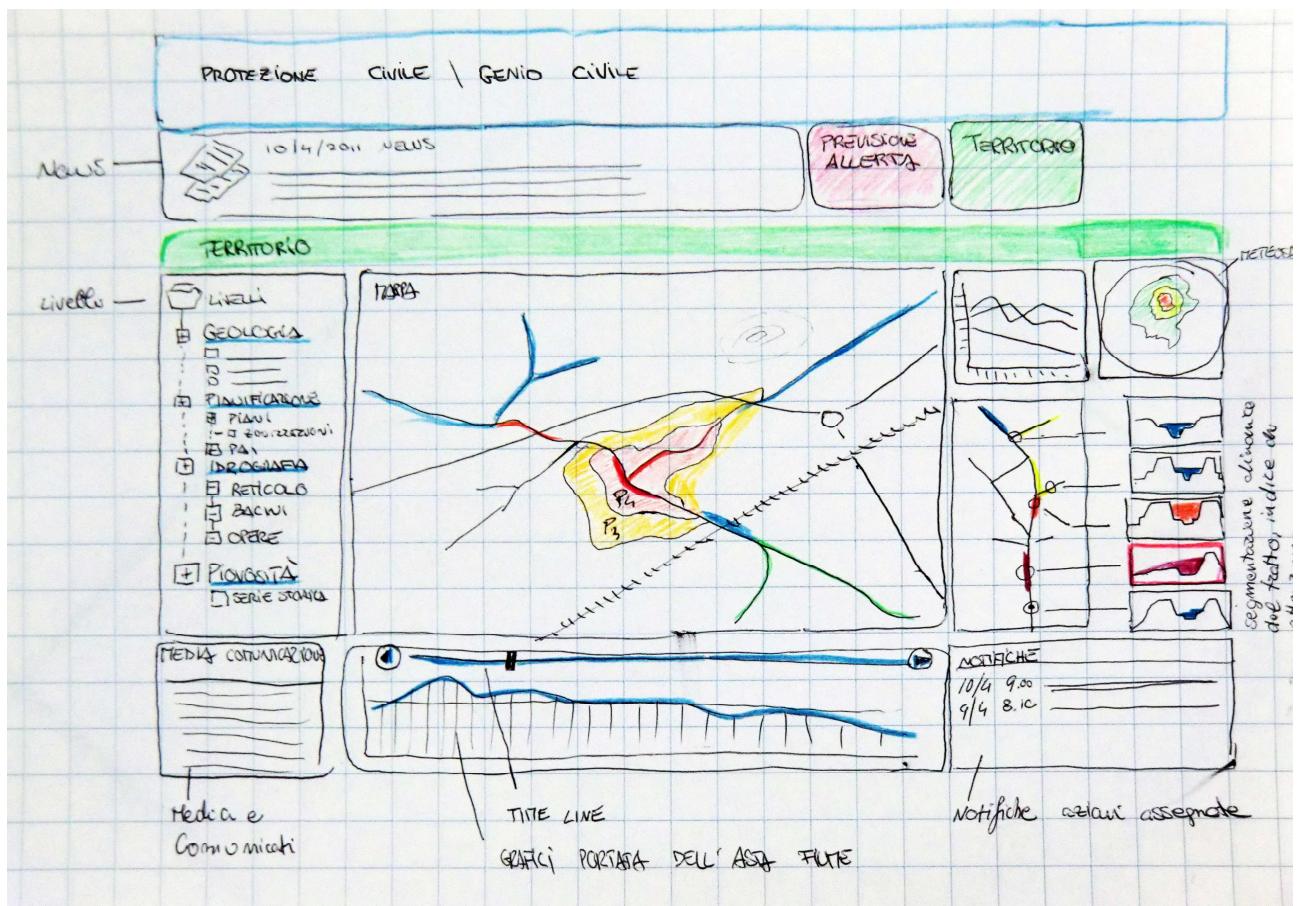 PROTEZIONE CIVILE \ GENIO CIVILE
News
10/4/2011 NEWS
PREVISIONE
ALLERTA
TERRITORIO
TERRITORIO
Livello
LIVELLI
GEOLOGIA
PIANIFICAZIONE
PIANI
ZONIZZAZIONI
PAI
IDROGRAFIA
RETICOLO
BACINI
OPERE
PIOVOSITÀ
SERIE STORICA
MAPPA
P4
P3
segmentazione dinamica
del tratto, indice di
MEDIA COMUNICAZIONE
NOTIFICHE
10/4 9.00
9/4 8.10
Media e
Comunicati
TIME LINE
GRAFICI PORTATA DELL' ASTA FIUME
Notifiche azioni assegnate